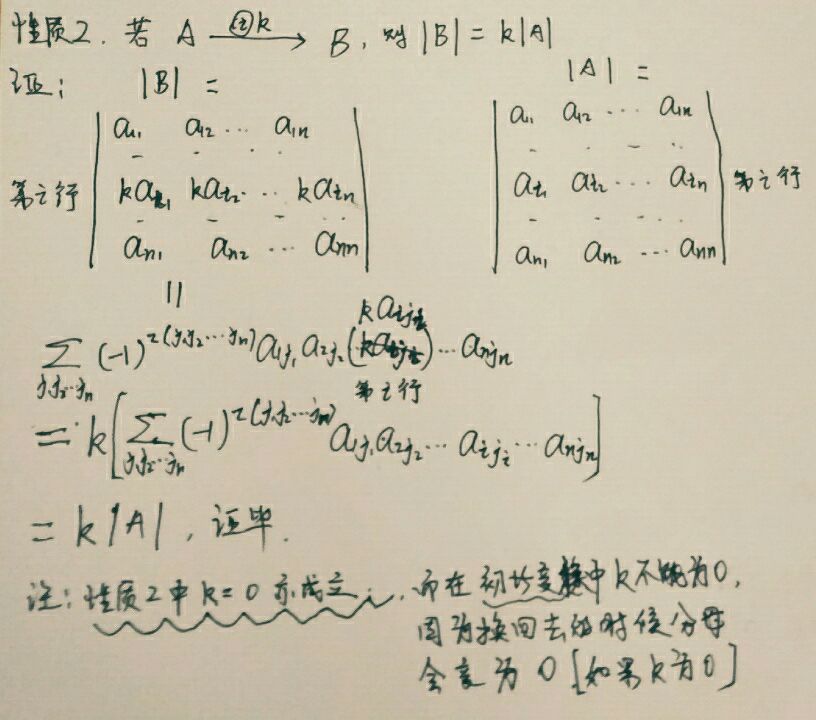 性质2. 若 A —ⓘk→ B, 则 |B| = k|A|
证: |B| = |A| =
a₁₁ a₁₂ ··· a₁ₙ a₁₁ a₁₂ ··· a₁ₙ
第i行 kaᵢ₁ kaᵢ₂ ··· kaᵢₙ aᵢ₁ aᵢ₂ ··· aᵢₙ 第i行
aₙ₁ aₙ₂ ··· aₙₙ aₙ₁ aₙ₂ ··· aₙₙ
||
ka_{ij_i}
∑_{j₁j₂···jₙ} (-1)^{τ(j₁j₂···jₙ)} a_{1j₁} a_{2j₂} (ka_{ij_i}) ··· a_{njₙ}
第i行
= k[∑_{j₁j₂···jₙ} (-1)^{τ(j₁j₂···jₙ)} a_{1j₁} a_{2j₂} ··· a_{ij_i} ··· a_{njₙ}]
= k|A|, 证毕.
注: 性质2中k=0亦成立, 而在初等变换中k不能为0,
因为换回去的时候分母
会变为0[如果k为0]